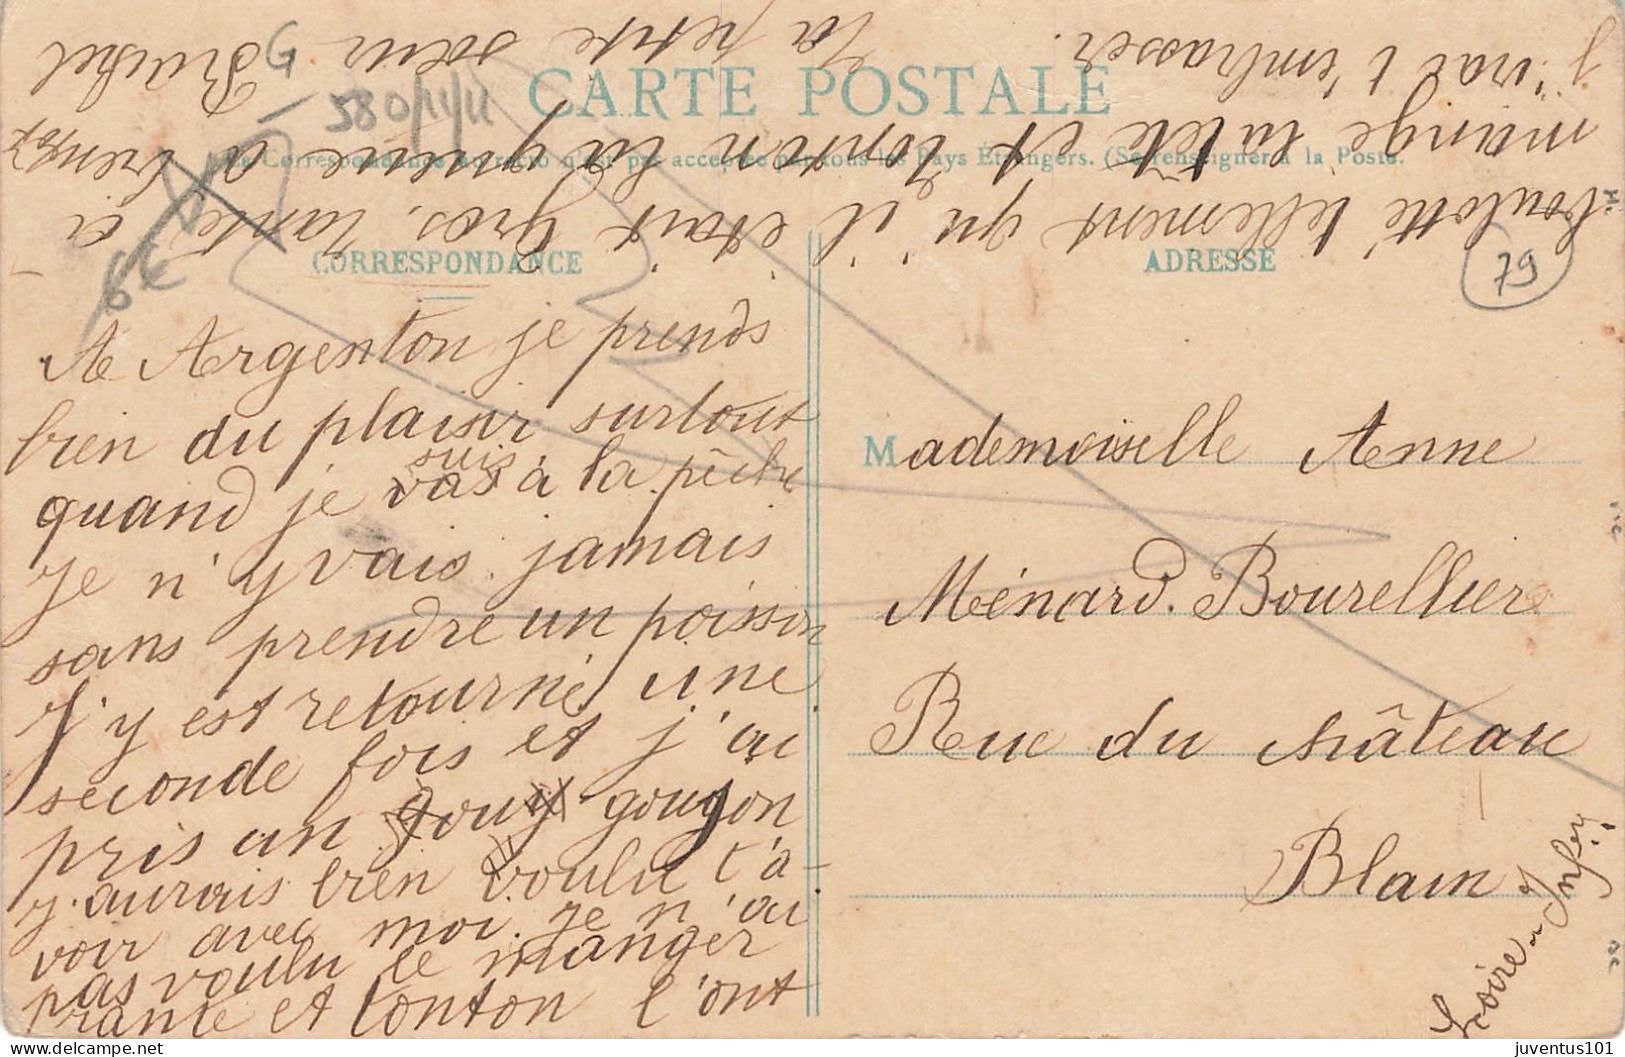 CARTE POSTALE
La Correspondance au recto n'est pas acceptée par tous les Pays Étrangers. (Se renseigner à la Poste.
CORRESPONDANCE
ADRESSE
A Argenton je prends
bien du plaisir surtout
quand je suis vas à la pêche
Je n'y vais jamais
sans prendre un poisson
J'y est retourné une
seconde fois et j'ai
pris un gougon
j'aurais bien voulu t'a-
voir avec moi. Je n'ai
pas voulu le manger
et tonton l'ont
boulotté tellement qu'il était gros, tante a
mangé la tête et tonton la queue a
J'irai t'embrasser.
Ta petite sœur
Rachel
Mademoiselle Anne
Ménard. Bourellier
Rue du château
Blain
Loire-Infer
79
6€
580/11/11
G
juventus101